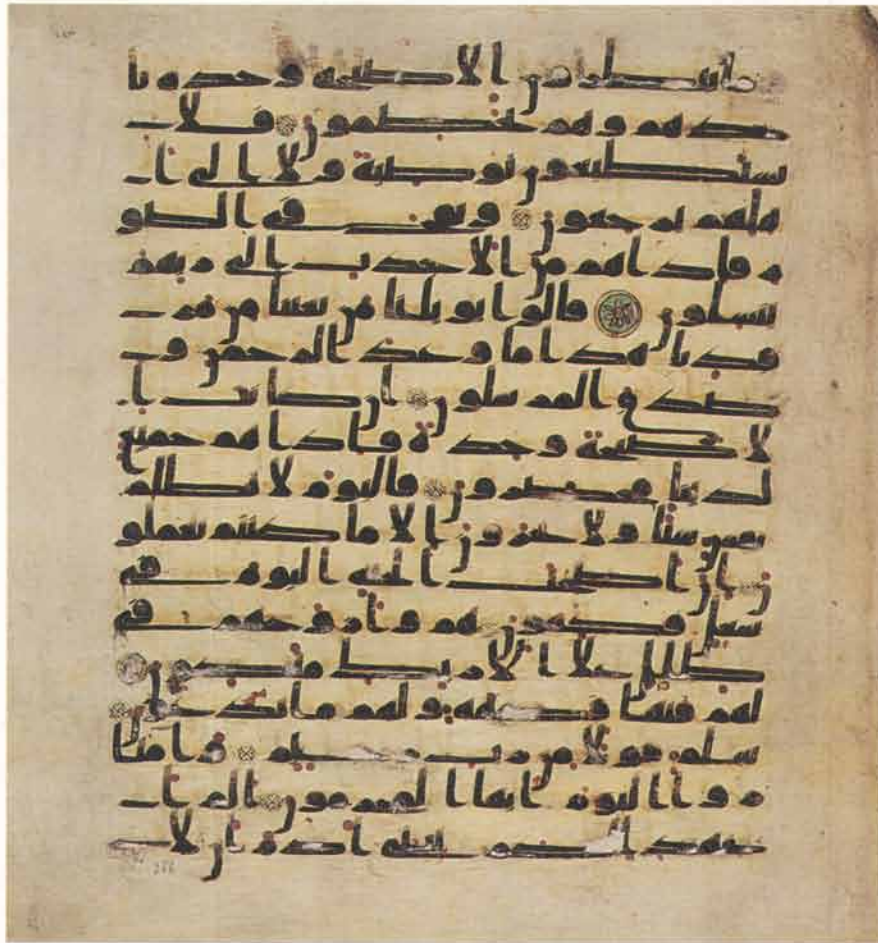 ما ينظرون الا صيحة وحدة تا
خذهم وهم يخصمون فلا
يستطيعون توصية ولا الى ا
هلهم يرجعون ونفخ فى الصو
ر فاذا هم من الاجدث الى ربهم
ينسلون قالوا يويلنا من بعثنا من مر
قدنا هذا ما وعد الرحمن و
صدق المرسلون ان كانت ا
لا صيحة وحدة فاذا هم جميع
لدينا محضرون فاليوم لا تظلم
نفس شيا ولا تجزون الا ما كنتم تعملو
ن ان اصحب الجنة اليوم فى
شغل فكهون هم وازوجهم فى
ظلل على الارايك متكون
لهم فيها فكهة ولهم ما يدعون
سلم قولا من رب رحيم وامتا
زوا اليوم ايها المجرمون الم ا
عهد اليكم يبنى ادم ان لا